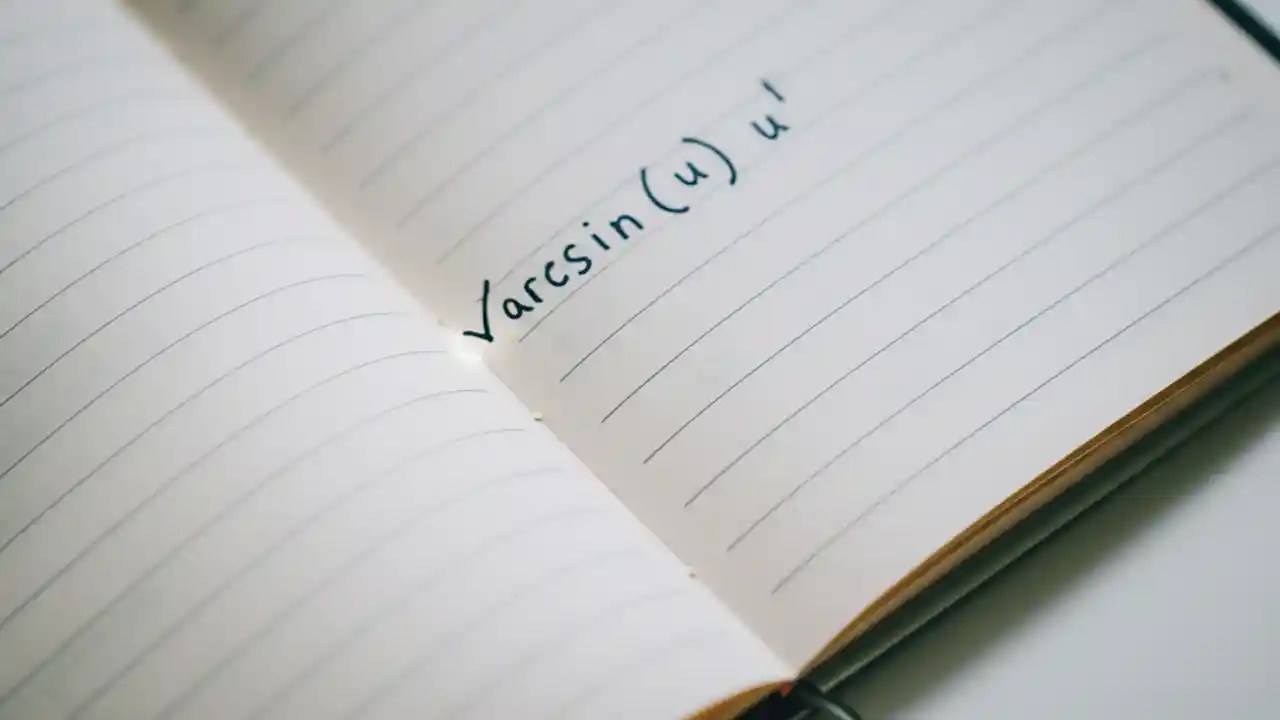 √arcsin(u) u'